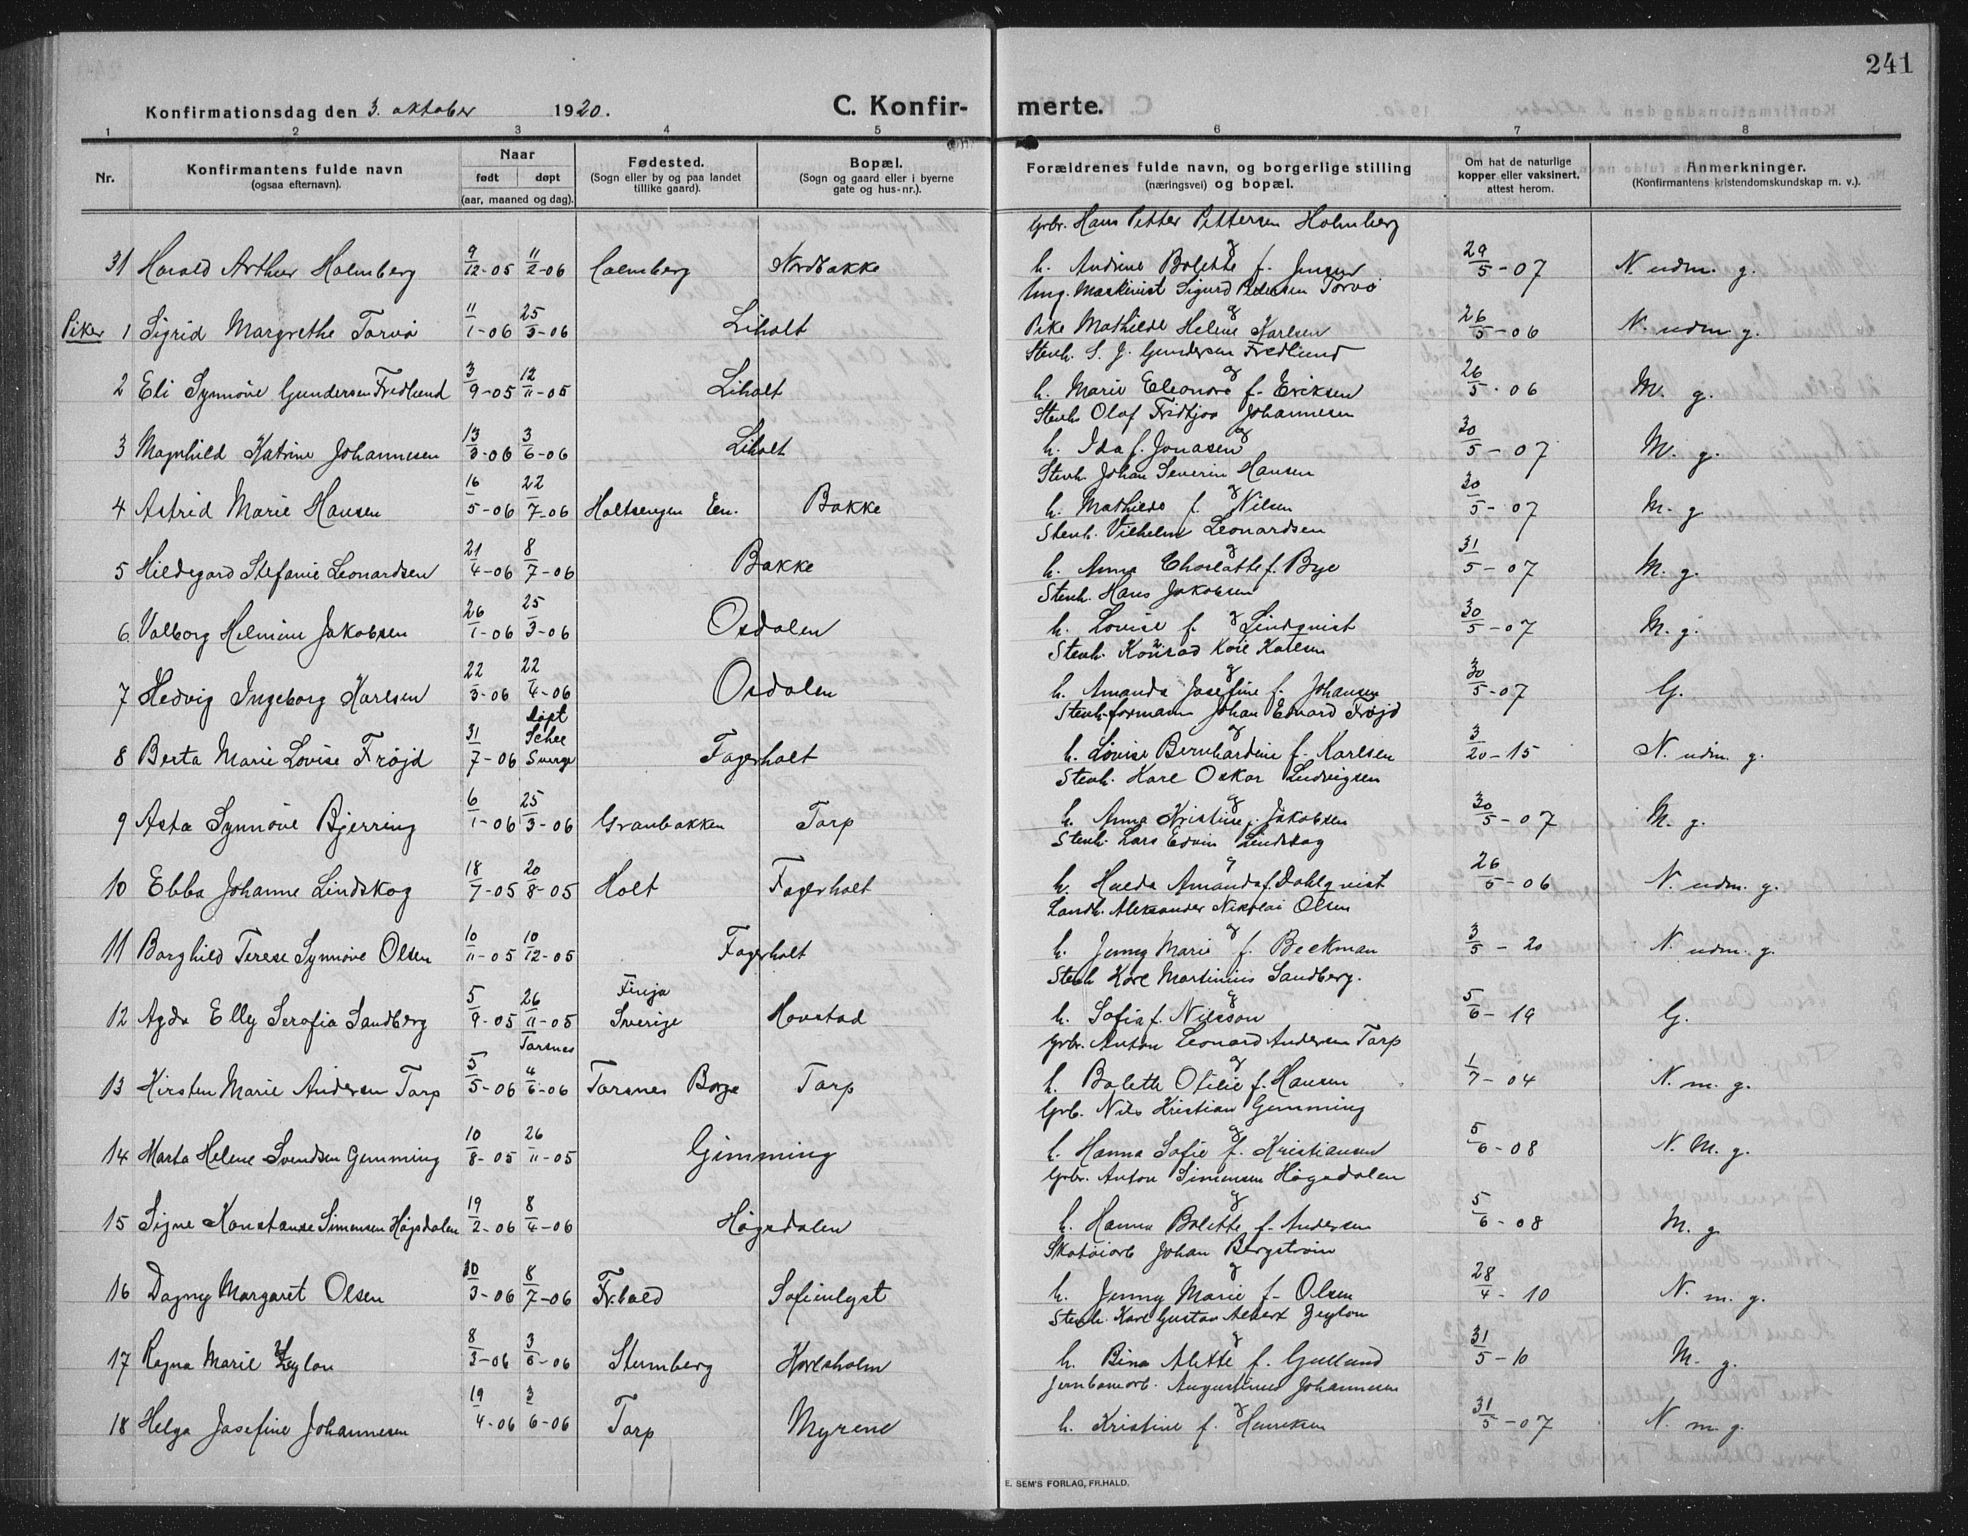 241
Konfirmationsdag den 3. oktober 1920.
C. Konfir- merte.
1 2 3 4 5 6 7 8
Nr.
Konfirmantens fulde navn
(ogsaa efternavn).
Naar
født døpt
(aar, maaned og dag).
Fødested.
(Sogn eller by og paa landet
tillike gaard).
Bopæl.
(Sogn og gaard eller i byerne
gate og hus-nr.).
Forældrenes fulde navn, og borgerlige stilling
(næringsvei) og bopæl.
Om hat de naturlige
kopper eller vaksinert,
attest herom.
Anmerkninger.
(Konfirmantens kristendomskundskap m. v.).
Grbr. Hans Petter Pettersen Holmberg
31 Harald Arthur Holmberg 9/12-05 11/2-06 Holmberg Nordbakke h. Andrine Bolette f. Jensen 29/5-07 N. udm. g.
Ung. Maskinist Sigurd Pedersen Torvø
Piker 1 Sigrid Margrethe Torvø 11/1-06 25/3-06 Liholt Pike Mathilde Helene Karlsen 26/5-06 N. udm g.
Stenh. S. J. Gundersen Fredlund
2 Eli Synnøve Gundersen Fredlund 3/9-05 12/11-05 Liholt h. Marie Eleonore f. Eriksen 26/5-06 M. g.
Stenh. Olaf Fridtjov Johannesen
3 Magnhild Katrine Johannesen 13/3-06 3/6-06 Liholt h. Ida f. Jonasen 30/5-07 M. g.
Stenh. Johan Severin Hansen
4 Astrid Marie Hansen 16/5-06 22/7-06 Holtsengen En. Bakke h. Mathilde f. Nilsen 30/5-07 M. g
Stenh. Vilhelm Leonardsen
5 Hildegard Stefanie Leonardsen 21/4-06 8/7-06 Bakke h. Anna Charlotte f. Bye 31/5-07 M. g.
Stenh. Hans Jakobsen
6. Valborg Helmine Jakobsen 26/1-06 25/3-06 Osdalen h. Lovise f. Lindqvist 30/5-07 M. g.
Stenh. Konrad Karl Karlsen
7 Hedvig Ingeborg Karlsen 22/3-06 22/4-06 Osdalen h. Amanda Josefine f. Johansen 30/5-07 G.
døpt Stenh.formann Johan Edvard Frøjd
8 Berta Marie Lovise Frøjd 31/7-06 Schee Sverige Fagerholt h. Lovise Bernhardine f. Karlsen 3/20-15 N. udm. g.
Stenh. Karl Oskar Ludvigsen
9 Asta Synnøve Bjerring 6/1-06 25/3-06 Granbakken Torp h. Anna Kristine f. Jakobsen 30/5-07 M. g.
Stenh. Lars Edvin Lindskog
10 Ebba Johanne Lindskog 18/7-05 20/8-05 Holt Fagerholt h. Hulda Amanda f. Dahlqvist 26/5-06 N. udm. g.
Landh. Aleksander Nikolai Olsen
11 Borghild Terese Synnøve Olsen 10/11-05 10/12-05 Fagerholt h. Jenny Marie f. Beckman 3/5-20 N. udm. g.
Stenh Karl Martinius Sandberg.
12 Agda Elly Serafia Sandberg 5/9-05 26/11-05 Finja Sverige Hovstad h. Sofia f. Nilsson 5/6-19 G.
Torsnes Grbr. Anton Leonard Andersen Torp
13 Kirsten Marie Andersen Torp 5/5-06 4/6-06 Torsnes Borge Torp h. Bolette Otilie f. Hansen 1/7-04 N. m. g.
Grb. Nils Kristian Gimming
14 Marta Helene Svendsen Gimming 10/8-05 26/11-05 Gimming h. Hanna Sofie f. Kristiansen 5/6-08 N. M. g.
Grbr. Anton Simensen Høgsdalen
15 Signe Konstanse Simensen Høgsdalen 19/2-06 8/4-06 Høgsdalen h. Hanna Bolette f. Andersen 5/6-08 M. g.
Skotøiarb Johan Bergstrøm
16 Dagny Margaret Olsen 30/3-06 8/7-06 Fr.hald Sofienlyst h. Jenny Marie f. Olsen 28/4-10 N. m. g.
Stenh. Karl Gustav Albert Zeylon
17 Ragna Marie Zeylon 8/3-06 3/6-06 Stumberg Karlsholm h. Bina Alette f. Gullund 31/5-10 M. g.
Jernbanearb. Augustinus Johannesen
18 Helga Josefine Johannesen 19/4-06 3/6-06 Torp Myrene h. Kristine f. Henriksen 31/5-07 N. m. g.
E. SEM'S FORLAG, FR.HALD.